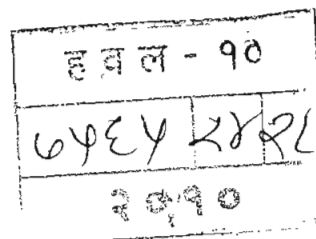 हवल - १०
७५६५ २४ २८
२०१०